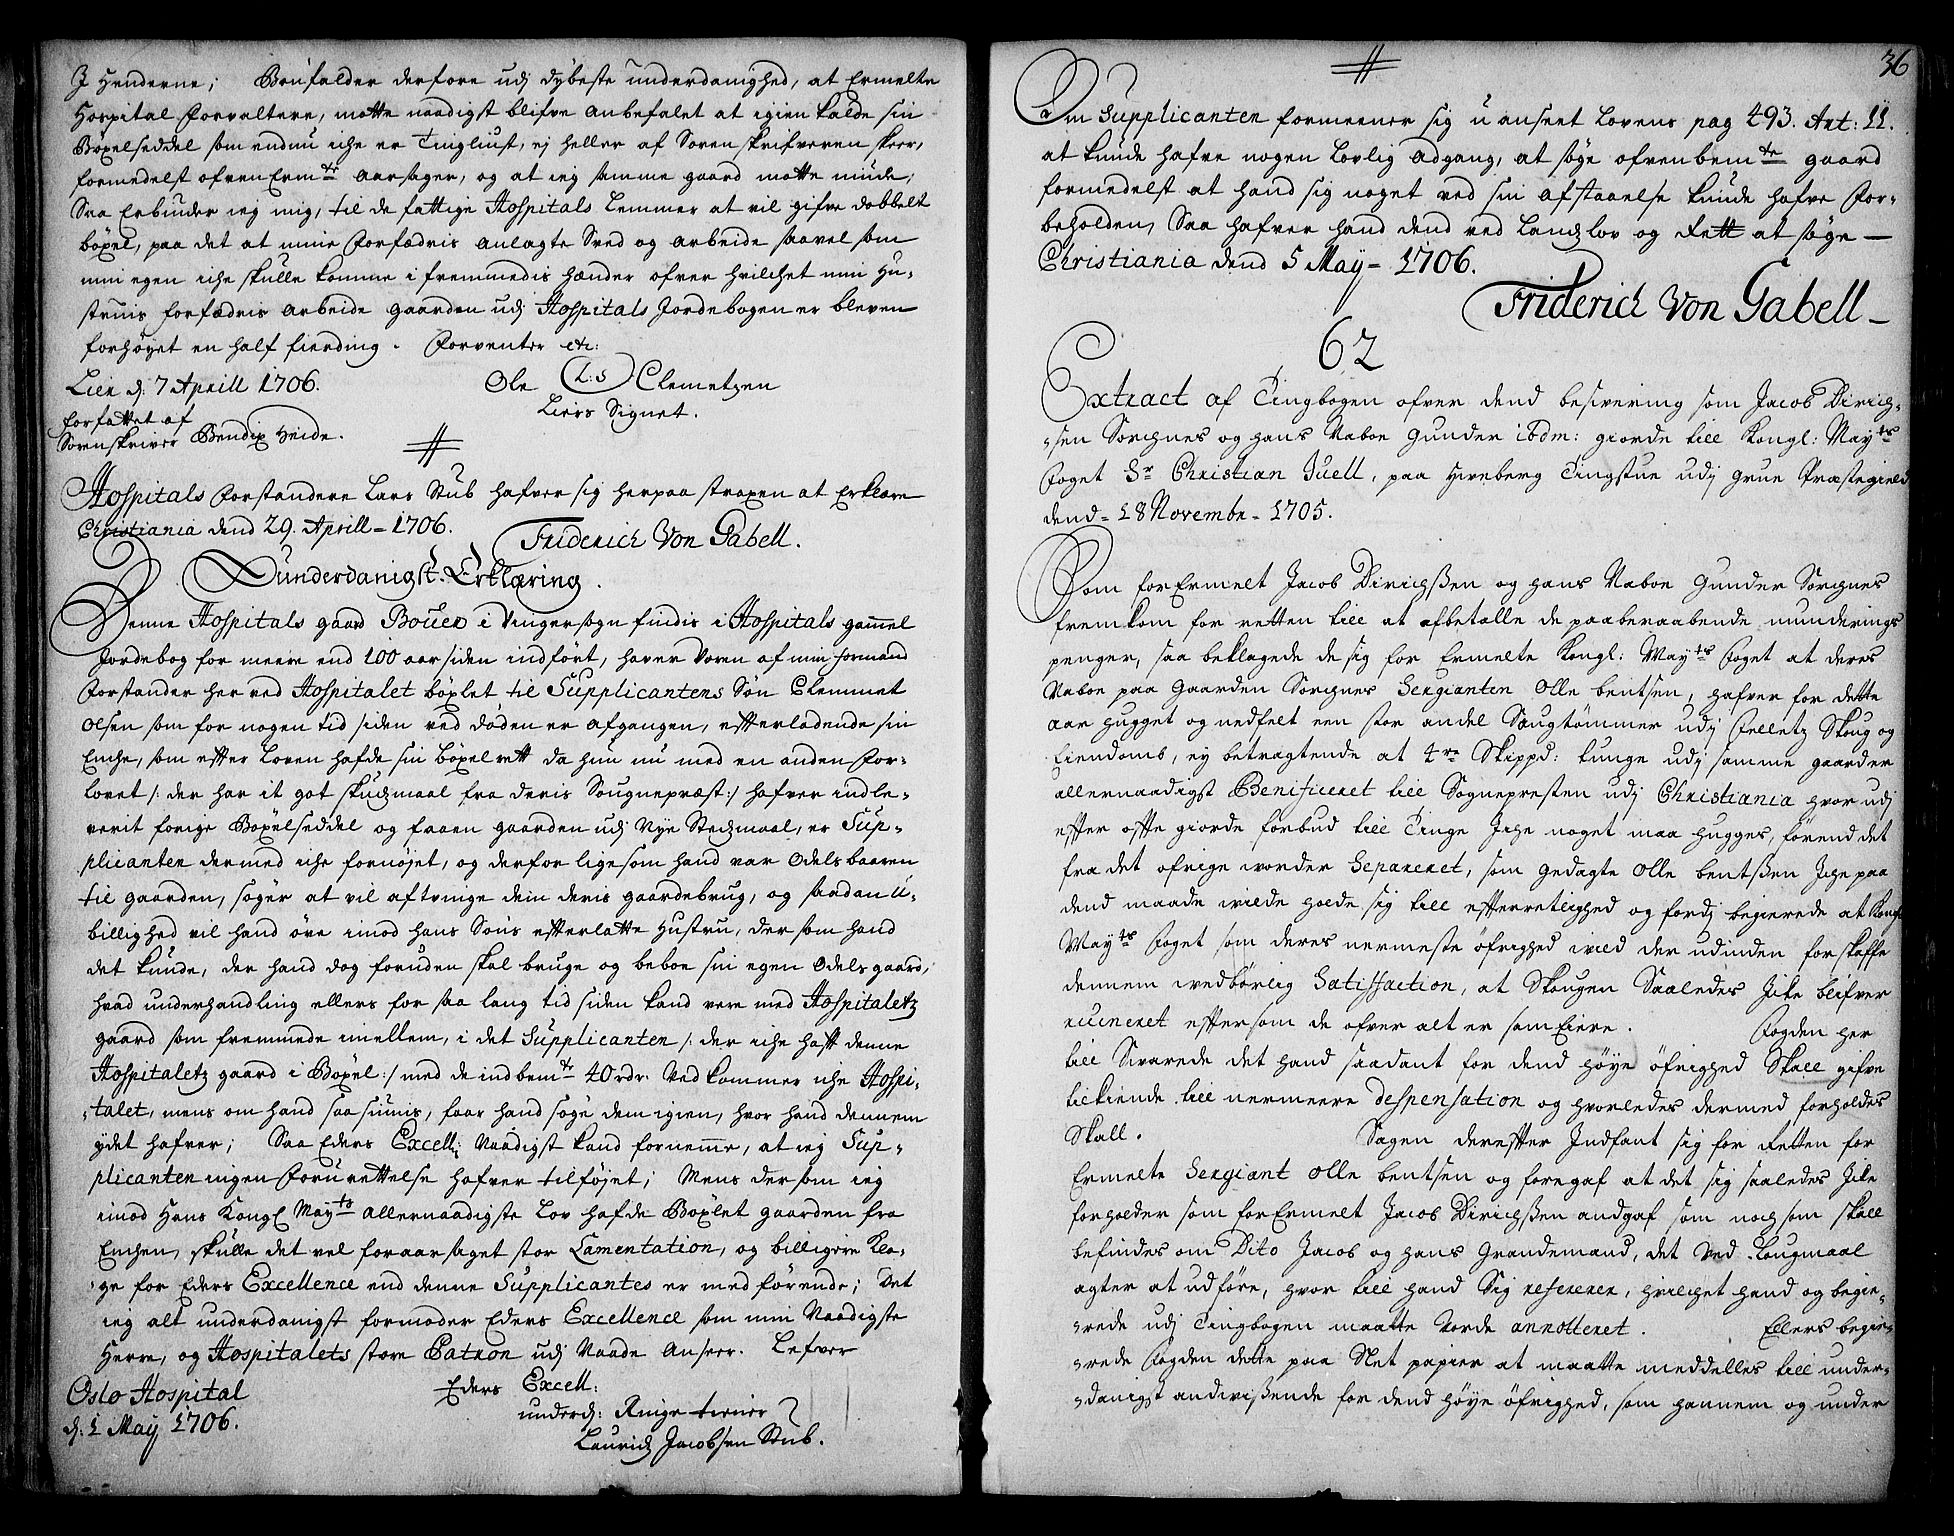 J Henderne; Bönfalder derfore udj dybeste underdanighed, at Ermelte
Hospital Forvaltere, motte naadigst blifve anbefalet at igien kalde sin
Böxelseddel som endnu iche er Tingliust, ej heller af Sorenskrifveren skrer,
formedelst ofvenErm^te aarsager, og at ieg samme gaard motte niude;
Saa Erbinder ieg mig, til de fattige Hospitals Lemmer at vil gifve dobbelt
böxel, paa det at mine Forfædris anlagte Sved og arbeide saavel som
min egen iche skulle komme i fremmedis hænder ofver hvilchet min Hu-
struis forfædris arbeide gaarden udj Hospitals Jordebogen er bleven
forhöyet en half fierding. Forventer etc:
Lier d: 7 Aprill 1706. Ole (L:S) Clemetzen
forfattet af Liers Signet.
Sorenskriver Bendix Heide.
Hospitals Forstandere Lars Stub hafver sig herpaa straxen at Erklære
Christiania dend 29. Aprill = 1706. Friderich Von Gabell.
Dunderdanigst. Erklæring.
Denne Hospitals gaard Bouer i Vingersogn findis i Hospitals gammel
Jordebog for meere end 100 aar siden indfört, haver Voren af min formand
Forstander her ved Hospitalet böxlet til Supplicantens Sön Clemmet
Olsen som for nogen tid siden ved döden er afgangen, effterladende sin
Enche, som effter Loven hafde sin böxel rett da hun nu med en anden For-
lovet /: der har it got skudzmaal fra deris Sougnepræst :/ hafver indle-
verit forige Böxelseddel og faaen gaarden udj Nye Stedzmaal, er Sup-
plicanten dermed iche fornöjet, og derfor ligesom hand var Odelsbaaren
til gaarden, söger at vil aftvinge dem deris gaardebrug, og saadan u-
billighed vil hand öve imod hans Söns efterlatte Hustru, der som hand
det kunde, der hand dog foruden skal bruge og beboe sin egen Odelsgaard,
hvad underhandling ellers for saa lang tid siden kand vere med Hospitaletz
gaard som fremmede imellem, i det Supplicanten /: der iche hafft denne
Hospitaletz gaard i Böxel :/ med de indbem^te 40 rdr. Vedkommer iche Hospi-
-talet, mens om hand saa siunis, faar hand söge dem igien, hvor hand dennem
ydet hafver; Saa Eders Excell: Naadigst kand fornemme, at ieg Sup-
plicanten ingen Forurettelse hafver tilföjet; Mens dersom ieg
imod Hans Kongl May^ts allernaadigste Lov hafde Böxlet gaarden fra
Enchen, skulle det vel foraarsaget stor Lamentation, og billigere Kla-
-ge for Eders Excellence end denne Supplicantes er medförende; Det
ieg alt underdanigst formoder Eders Excellence som min Naadigste
Herre, og Hospitalets store Patron udj Naade anseer. Lefver
Oslo Hospital Eders Excell:
d: 1 May 1706. underd: Ringe tiener
Lauridz Jacobsen Stub.
36
Om Supplicanten formeener sig u anseet Lovens pag 493. Art: 11.
at kunde hafve nogen Lovlig adgang, at söge ofvenbem^te gaard
formedelst at hand sig noget ved sin afstaaelse kunde hafve For-
beholden, Saa hafver hand dend ved Landzlov og Rett at söge
Christiania dend 5 May = 1706.
Friderich Von Gabell
62
Extract af Tingbogen ofver dend besvering som Jacob Dirich-
-sen Sorchnes og hans Naboe Gunder ibdm: giorde till Kongl: May^ts
Foget Sr Christian Juell, paa Hveberg Tingstue udj Grue Præstegield
dend = 18 Novembr = 1705.
Som forErmelt Jacob Dirichsßen og hans Naboe Gunder Sorchnes
fremkom for retten till at afbetalle de paaberaabende munderings
penger, saa beklagede de sig for Ermelte Kongl: May^ts Foget at deres
Naboe paa Gaarden Sorchnes Sergianten Olle bentsen, hafver for dette
aar hugget og nedfelt een stor andel Saugtömmer udj Felletz Skoug og
Eiendomb, ey betragtende at 4^re Skippd: tunge udj samme gaarder
allernaadigst Benificeret till Sognepresten udj Christiania hvor udj
effter offte giorde forbud till Tinge Iche noget maa hugges, förend det
fra det öfrige worder Separeret, som gedagte Olle bentsßen Iche paa
dend maade wilde holde sig till effterretlighed og fordj begierede at Kongl
May^ts Foget som deres nermeste öfrighed wild der udinden forskaffe
dennem wedbörlig Satisffaction, at Skougen Saaledes Icke blifver
ruineret efftersom de ofver alt er som Eiere. Fogden her
till Svarede det hand saadant for dend höye öfrighed Skall gifve
tilkiende till nermeere despensation og hvorledes dermed forholdes
Skall. Sagen dereffter Indfant sig for Retten for
Ermelte Sergiant Olle bentsen og foregaf at det sig saaledes Icke
forholder som forErmelt Jacob Dirichsßen andgaf som noch som skall
befindes om Dito Jacob og hans Grandemand, det ved Lougmaal
agter at udföre, hvor till hand Sig refererer, hvilchet hand og begie-
-rede udj Tingbogen maatte Vorde annotteret. Ellers begie-
-rede Fogden dette paa Slet papier at maatte meddelles till under-
-danigst andvisßende for dend höye öfrighed, som hannem og under